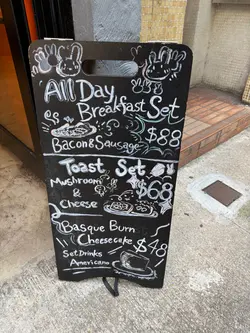 All Day
Breakfast Set
$88
Bacon & Sausage
Toast Set
$68
Mushroom
&
Cheese
Basque Burn
Cheesecake
$48
Set Drinks
Americano